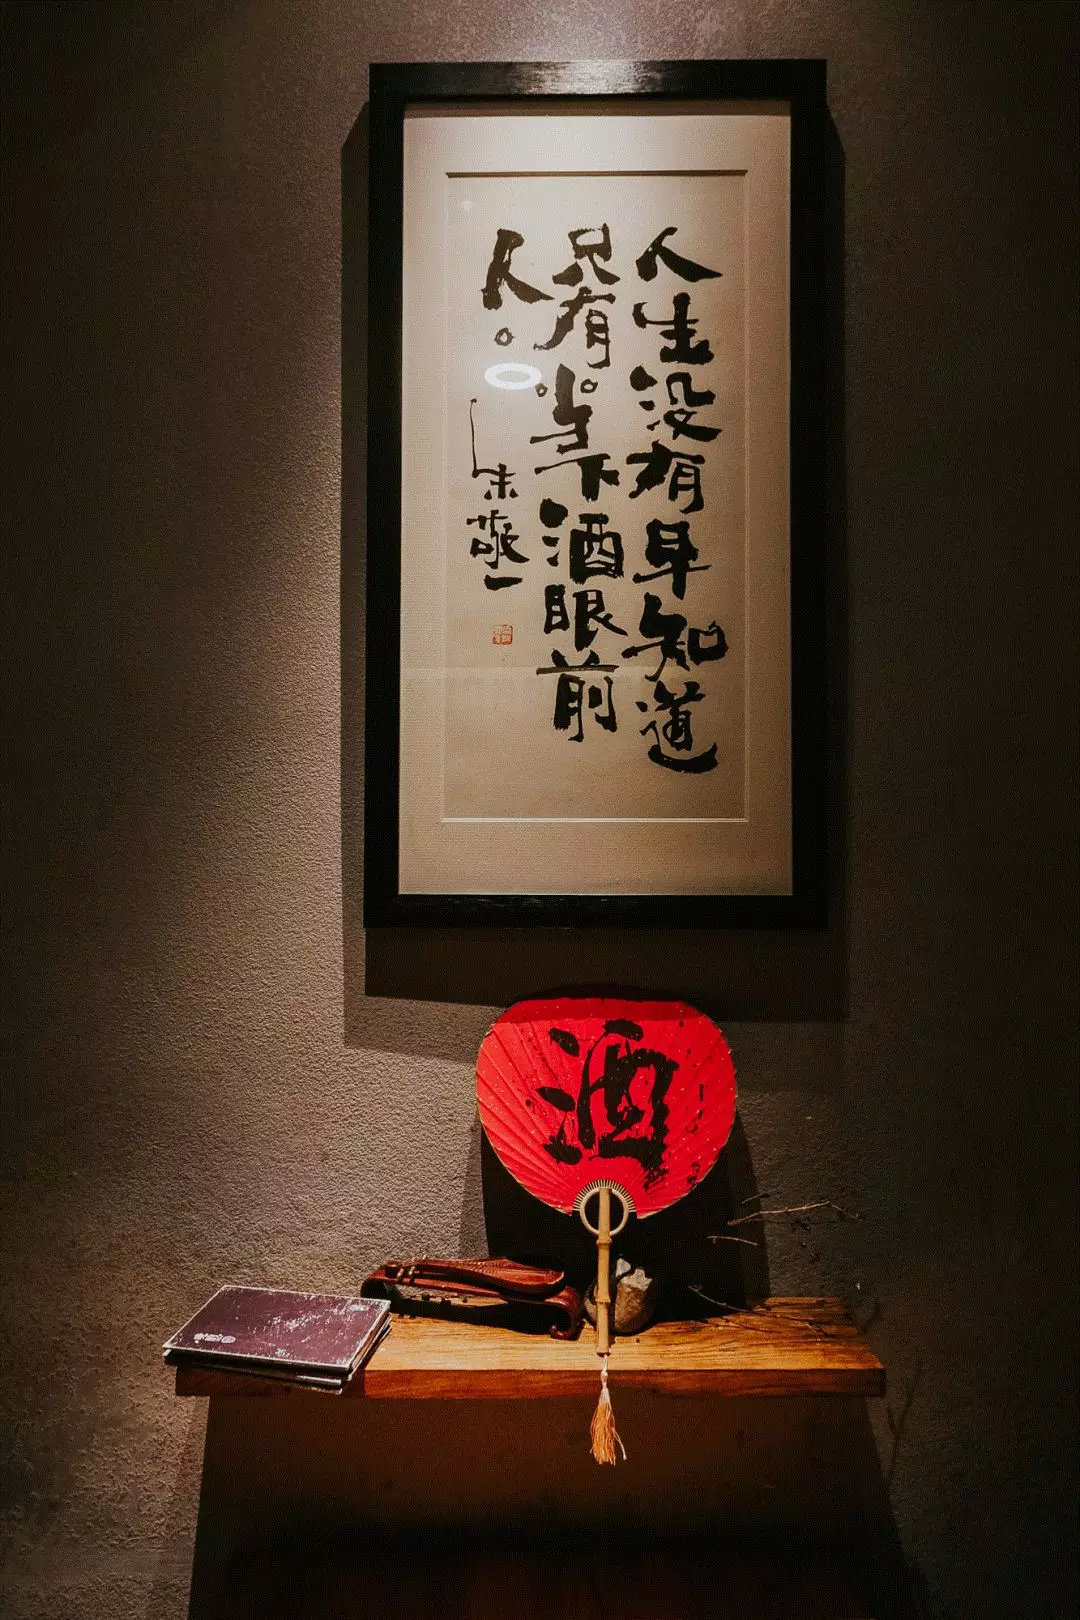 人生没有早知道
只有当下酒眼前
人。
朱敬一
酒